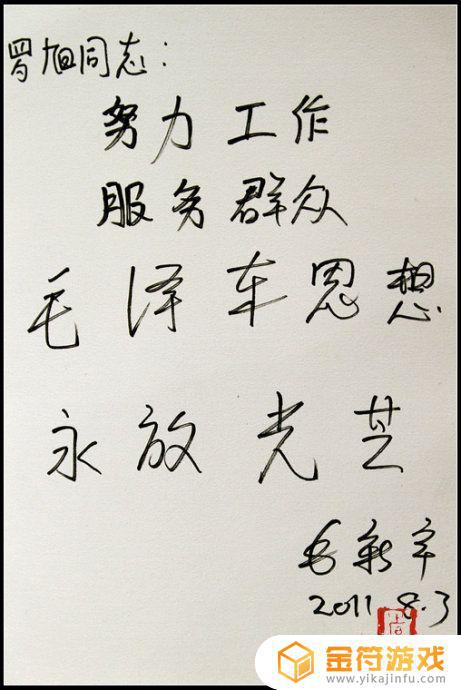 罗旭同志:
努力工作
服务群众
毛泽东思想
永放光芒
毛新宇
2011.8.3
金符游戏
www.yikajinfu.com